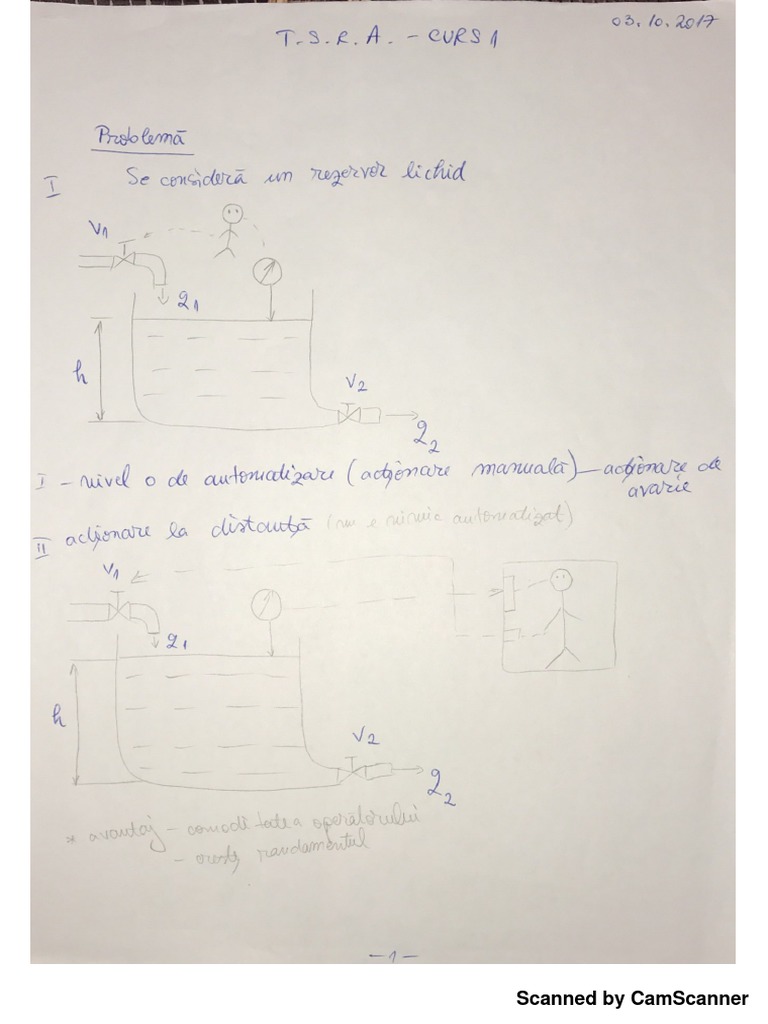 03.10.2017
T.S.R.A. - CURS 1
Problemă
I Se consideră un rezervor lichid
V1
q1
h
V2
q2
I - nivel 0 de automatizare (acționare manuală) - acționare de
avarie
II acționare la distanță (nu e nimic automatizat)
V1
q1
h
V2
q2
* avantaj - comoditatea operatorului
- crește randamentul
- 1 -
Scanned by CamScanner